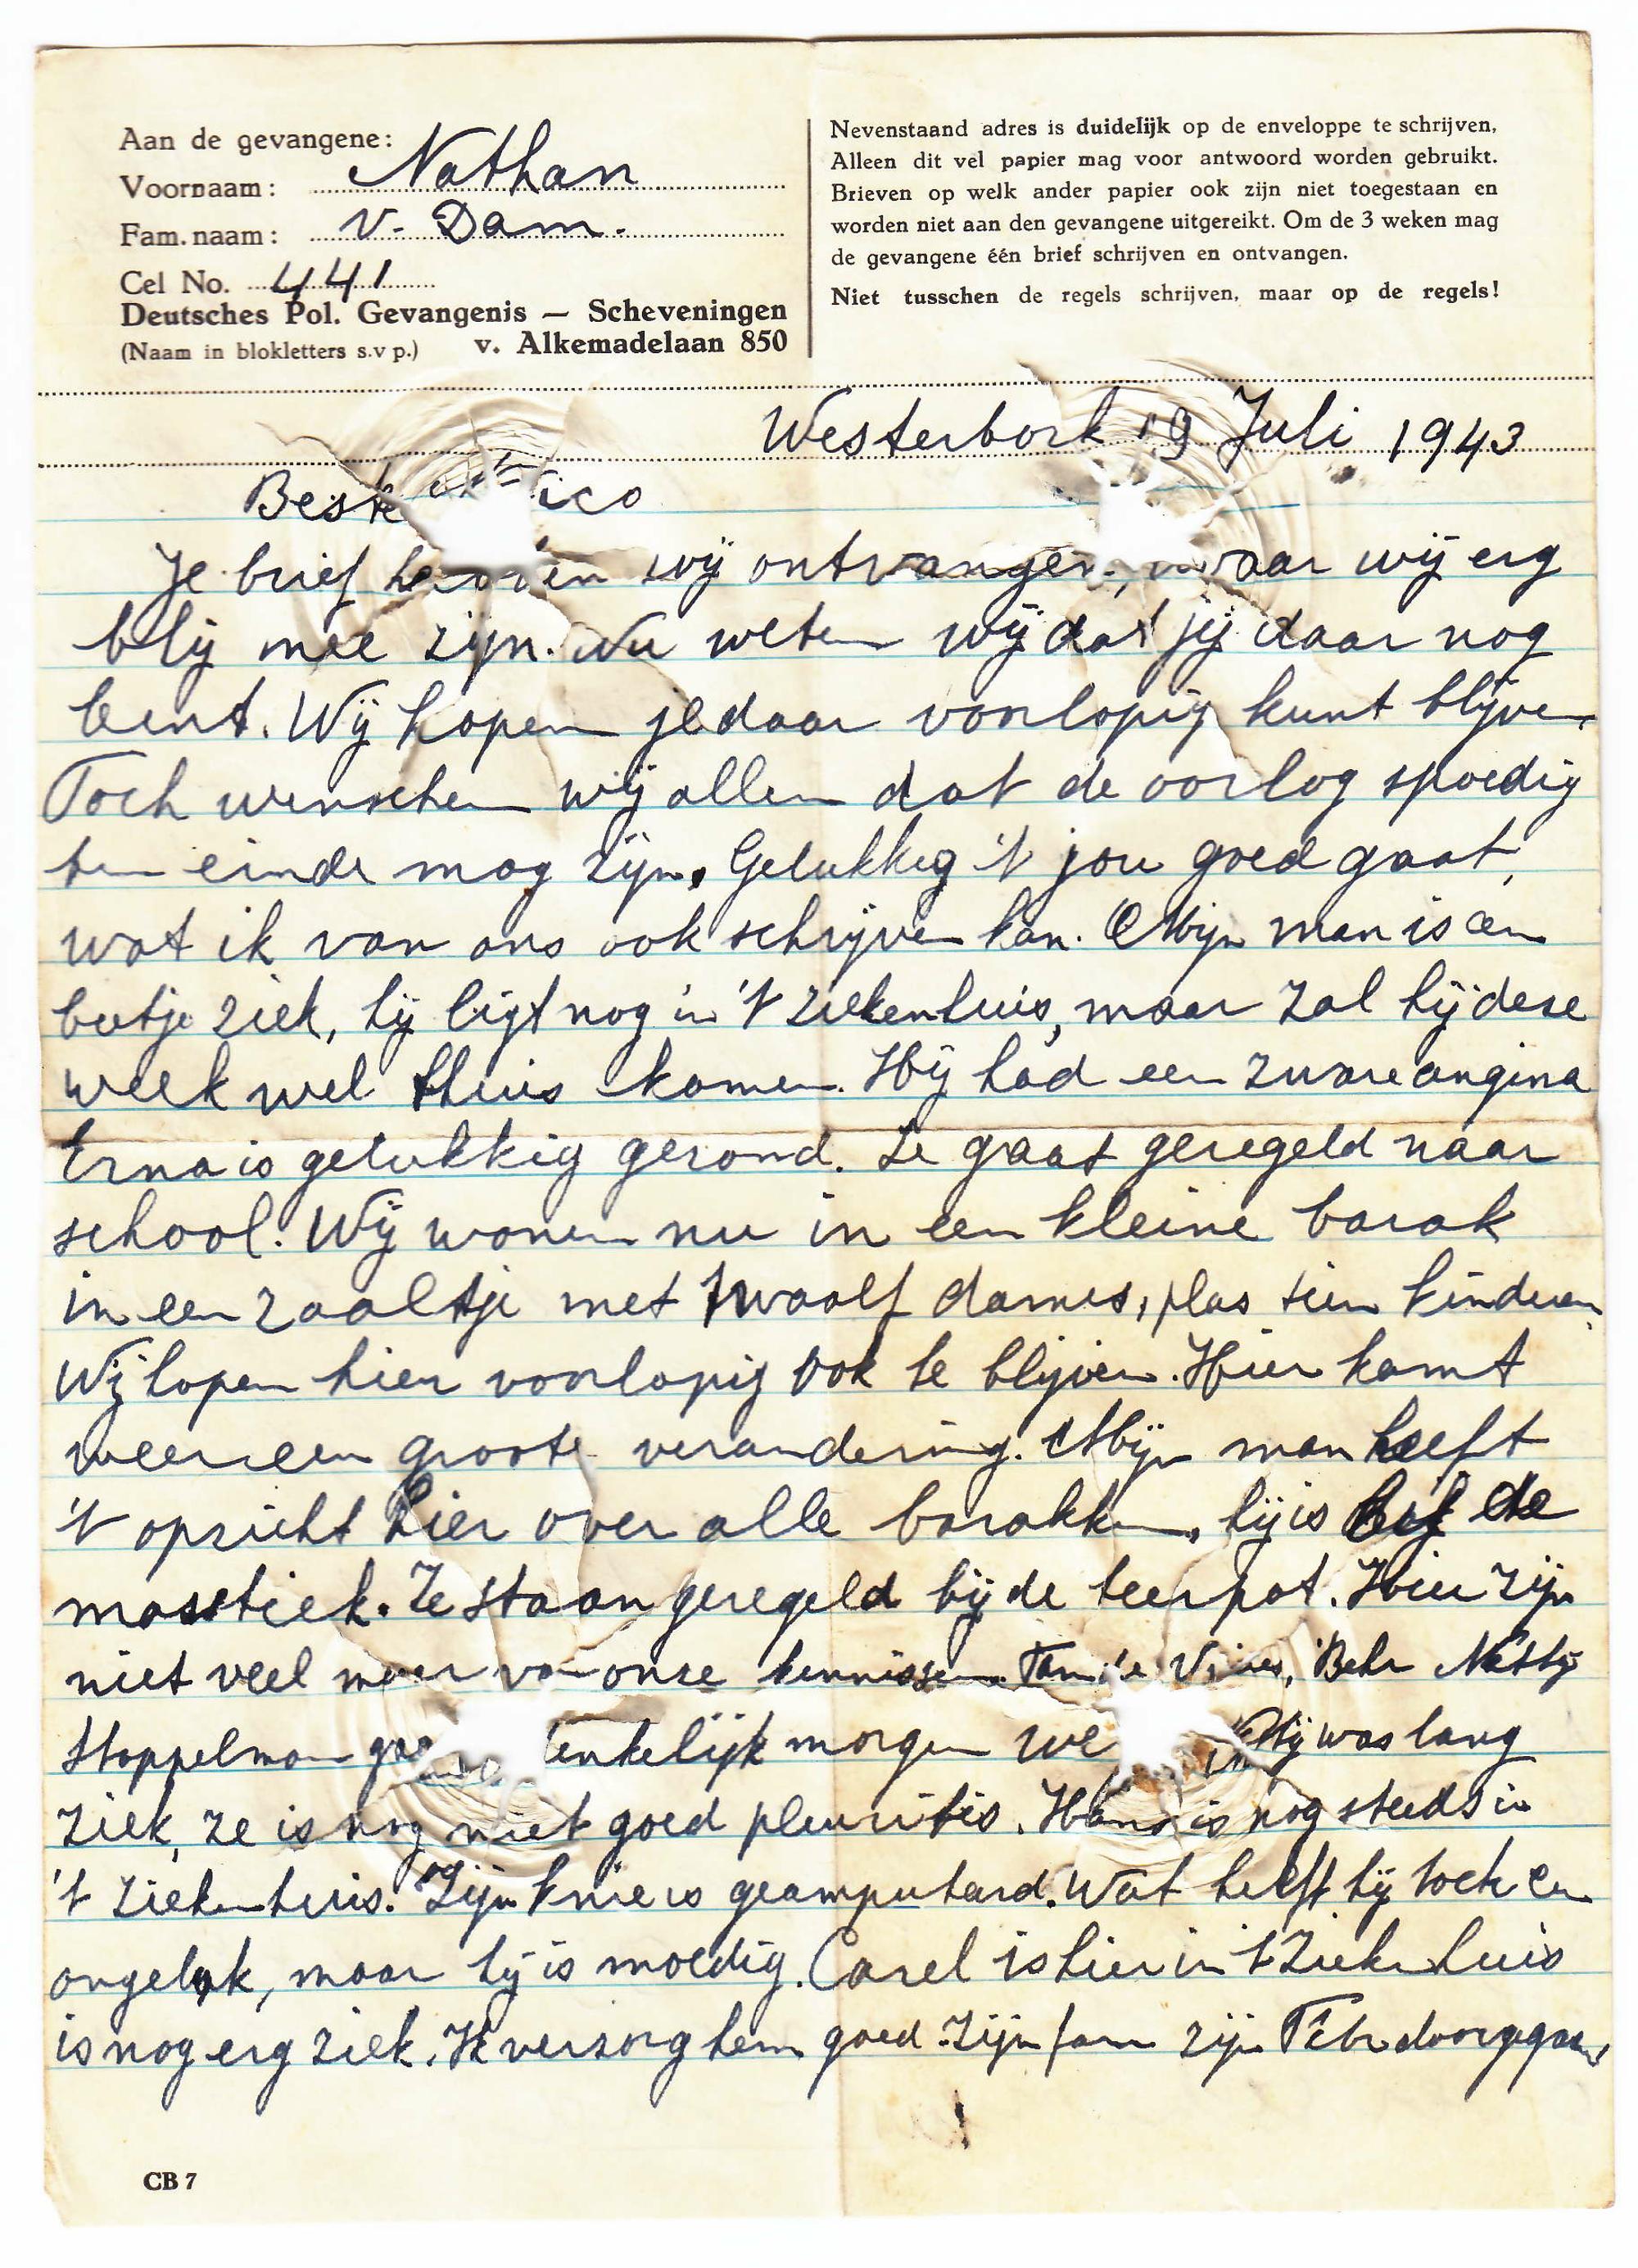 Aan de gevangene:
Voornaam: Nathan
Fam. naam: v. Dam.
Cel No. 441
Deutsches Pol. Gevangenis — Scheveningen
(Naam in blokletters s.v p.) v. Alkemadelaan 850
Nevenstaand adres is duidelijk op de enveloppe te schrijven,
Alleen dit vel papier mag voor antwoord worden gebruikt.
Brieven op welk ander papier ook zijn niet toegestaan en
worden niet aan den gevangene uitgereikt. Om de 3 weken mag
de gevangene één brief schrijven en ontvangen.
Niet tusschen de regels schrijven, maar op de regels!
Westerbork 19 Juli 1943
Beste
Je brief hebben wij ontvangen, waar wij erg
blij mee zijn. Nu weten wij dat jij daar nog
bent. Wij hopen je daar voorlopig kunt blijven.
Toch wenschen wij allen dat de oorlog spoedig
ten einde mog zijn. Gelukkig 't jou goed gaat,
wat ik van ons ook schrijven kan. Mijn man is een
beetje ziek, hij ligt nog in 't ziekenhuis, maar zal hij deze
week wel thuis komen. Hij had een zware angina
Erna is gelukkig gezond. Ze gaat geregeld naar
school. Wij wonen nu in een kleine barak
in een zaaltje met twaalf dames, plus tien kinderen
Wij hopen hier voorlopig ook te blijven. Hier komt
weer een groote verandering. Mijn man heeft
't opzicht hier over alle barakken, hij is bij de
masstiek. Ze staan geregeld bij de teerpot. Hier zijn
niet veel meer van onze kennissen. Fam. de Vries, Behr Netty
Stoppelman morgen was lang
ziek, ze is nog niet goed pleuritis. Hans is nog steeds in
't ziekenhuis. Zijn knie is geamputeerd. Wat heeft hij toch een
ongeluk, maar hij is moedig. Carel is hier in 't Ziekenhuis
is nog erg ziek. Ik verzorg hem goed. Zijn fam zijn doorgegaan
CB 7